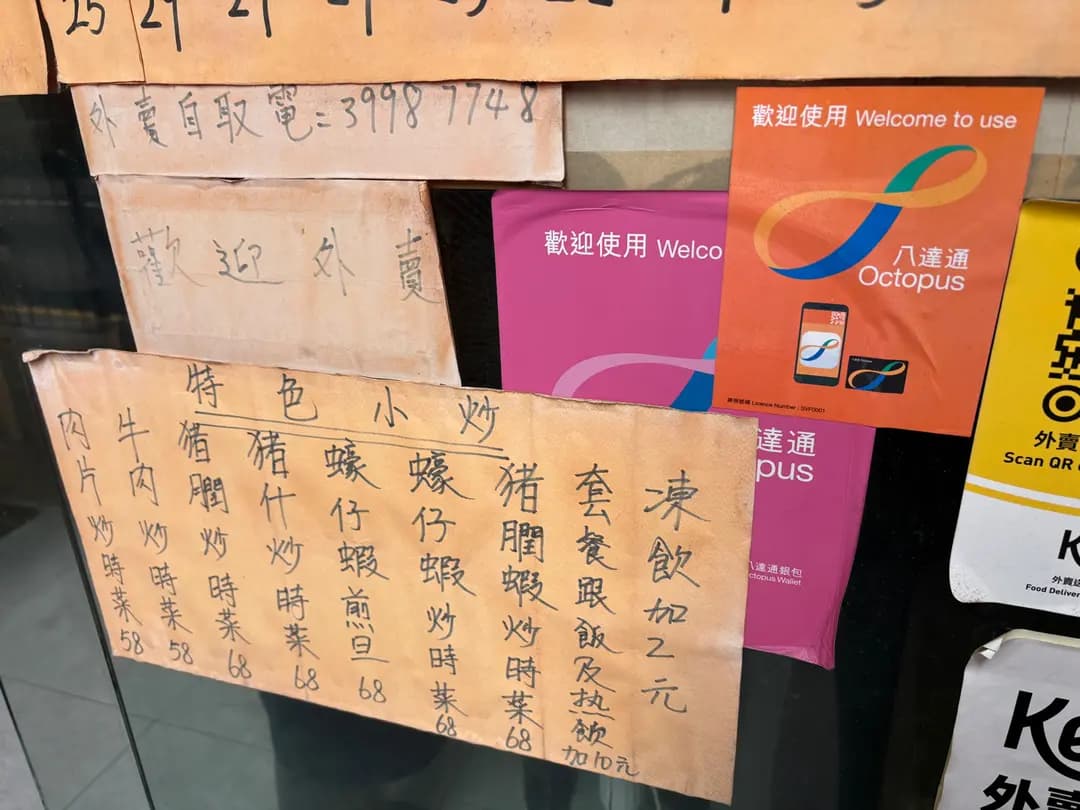 25
外賣自取電:39987748
歡迎外賣
特色小炒
肉片炒時菜58
牛肉炒時菜58
猪膶炒時菜68
猪什炒時菜68
蠔仔蝦煎旦68
蠔仔蝦炒時菜68
猪膶蝦炒時菜68
套餐跟飯及热飲加10元
凍飲加2元
歡迎使用 Welco
達通
pus
八達通銀包
ctopus Wallet
歡迎使用 Welcome to use
八達通
Octopus
牌照號碼 Licence Number : SVF0001
外賣
Scan QR
K
外賣
Food Deliver
Ke
外賣